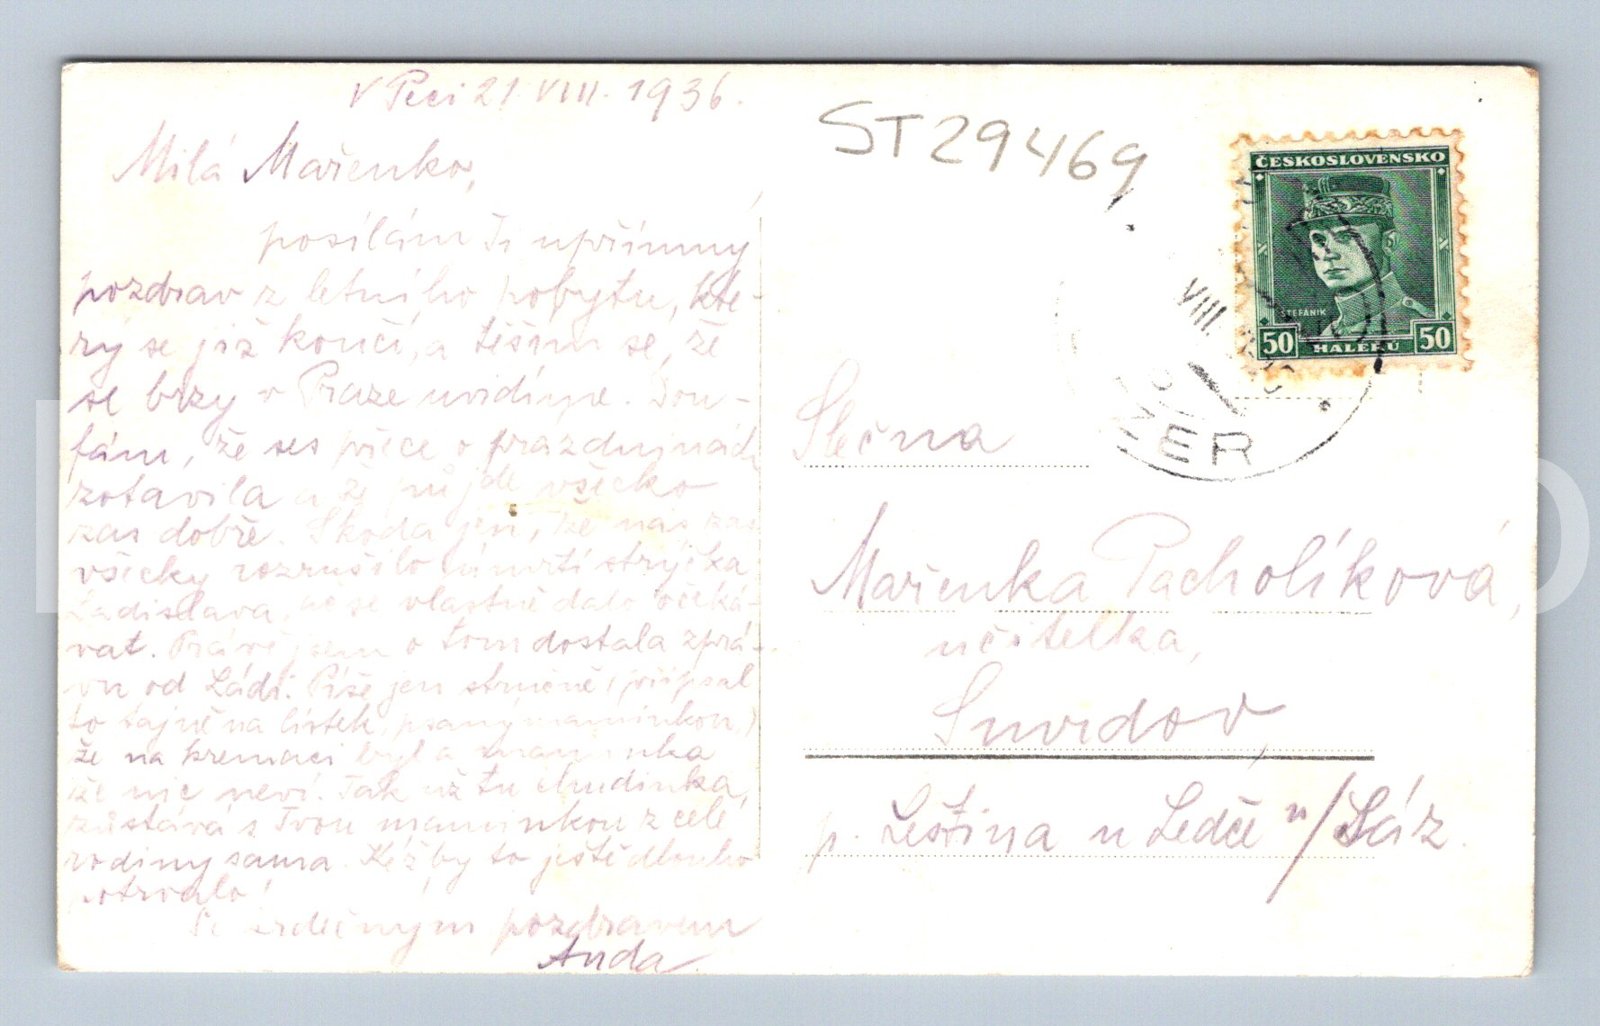 V Peci 21. VIII. 1936.
Milá Mařenko,
posílám Ti upřímný
pozdrav z letního pobytu, kte-
rý se již končí, a těším se, že
se brzy v Praze uvidíme. Dou-
fám, že ses přece o prázdninách
zotavila a že půjde všecko
zas dobře. Škoda jen, že nás zas
všecky rozrušilo úmrtí strýčka
Ladislava, ač se vlastně dalo očeká-
vat. Právě jsem o tom dostala zprá-
vu od Ládi. Píše jen stručně (připsal
to tajně na lístek, psaný maminkou,)
že na kremaci byl a maminka
že nic neví. Tak už tu chudinka,
zůstává s Tvou maminkou z celé
rodiny sama. Kéž by to ještě dlouho
potrvalo!
Se srdečným pozdravem
Anda.
ST29469
ČESKOSLOVENSKO
ŠTEFÁNIK
50 HALÉŘŮ 50
VIII.
ZER
Slečna
Mařenka Pacholíková,
učitelka,
Smrdov,
p. Leština u Ledče n/Sáz.